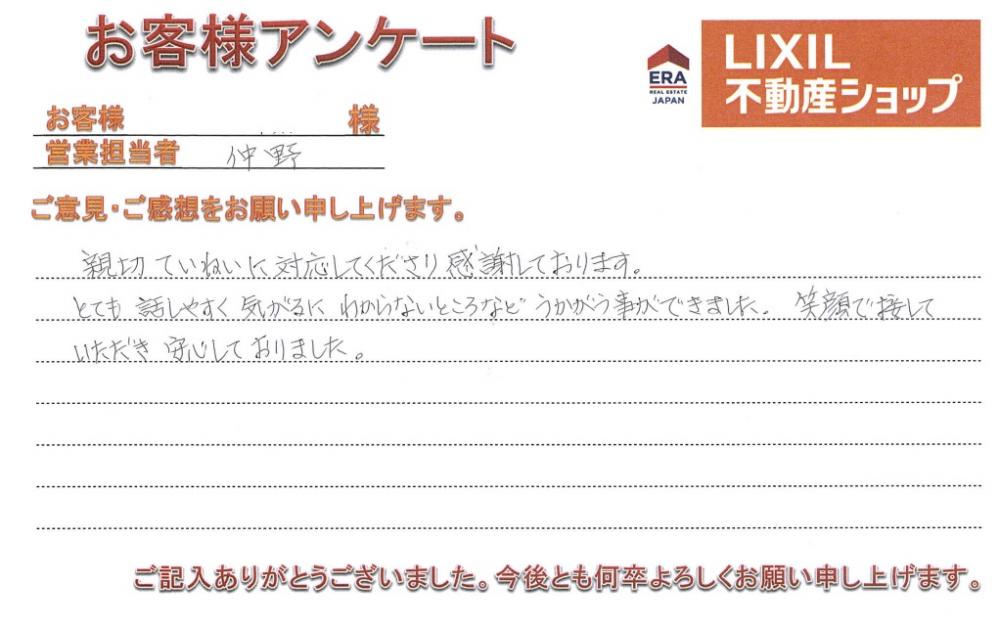 お客様アンケート
ERA
REAL ESTATE
JAPAN
LIXIL
不動産ショップ
お客様 様
営業担当者 仲野
ご意見・ご感想をお願い申し上げます。
親切 ていねいに 対応してくださり 感謝しております。
とても 話しやすく 気がるに わからないところなど うかがう事ができました。 笑顔で接して
いただき 安心しておりました。
ご記入ありがとうございました。今後とも何卒よろしくお願い申し上げます。